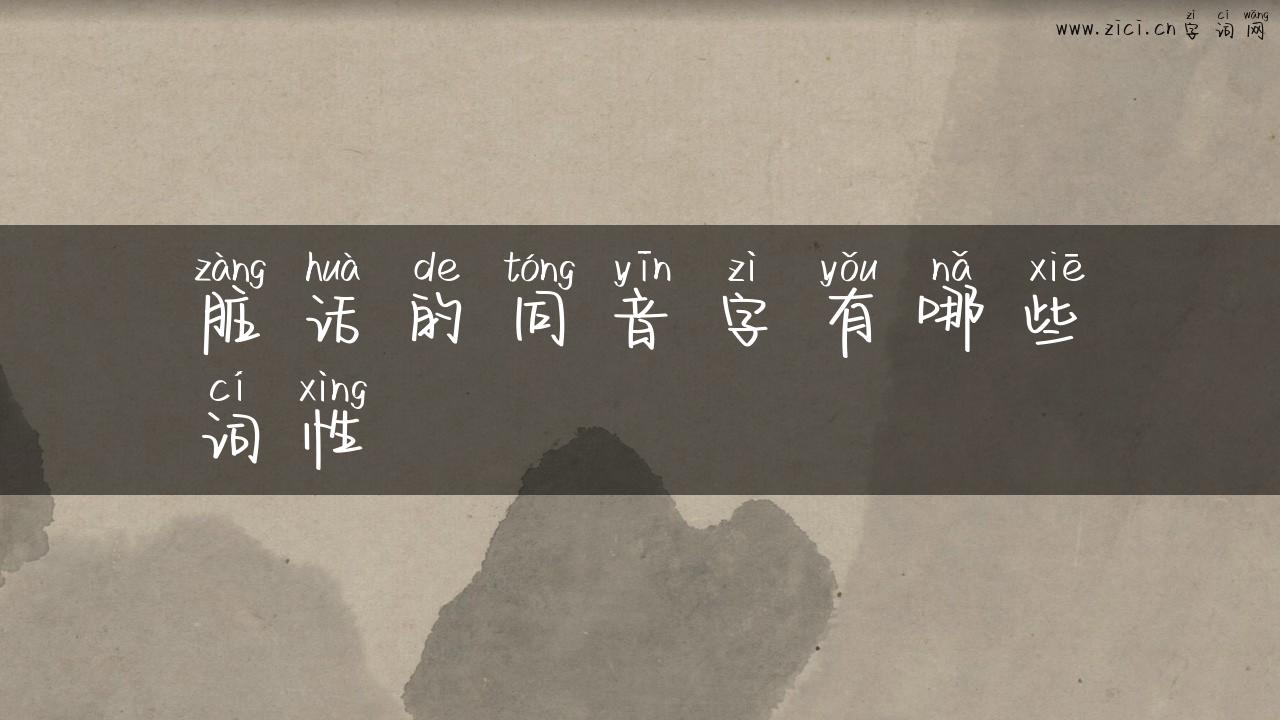 zì cí wǎng
www.zici.cn 字 词 网
zàng huà de tóng yīn zì yǒu nǎ xiē
脏 话 的 同 音 字 有 哪 些
cí xìng
词 性